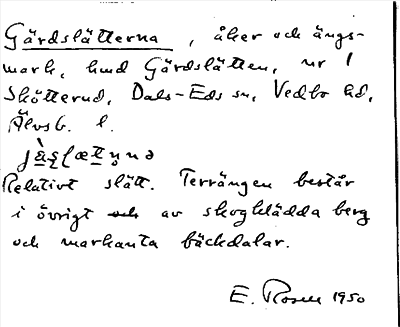 Gärdslätterna, åker och ängs-
mark, hmd Gärdslätten, nr 1
Skötterud, Dals-Eds sn, Vedbo hd,
Älvsb. l.
Relativt slätt. Terrängen består
i övrigt av skogklädda berg
och markanta bäckdalar.
E. Rosen 1950